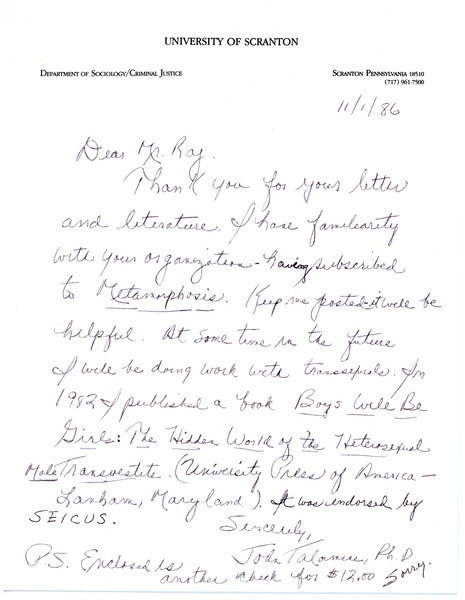 UNIVERSITY OF SCRANTON
DEPARTMENT OF SOCIOLOGY/CRIMINAL JUSTICE
SCRANTON PENNSYLVANIA 18510
(717) 961-7500
11/1/86
Dear Mr. Raj.
Thank you for your letter
and literature. I have familiarity
with your organization - having subscribed
to Metamorphosis. Keep me posted - it will be
helpful. At some time in the future
I will be doing work with transsexuals. In
1982 I published a book Boys Will Be
Girls: The Hidden World of the Heterosexual
Male Transvestite. (University Press of America -
Lanham, Maryland). It was endorsed by
SEICUS.
Sincerely,
John Talamini, Ph D
P.S. Enclosed is
another check for $12.00 Sorry.